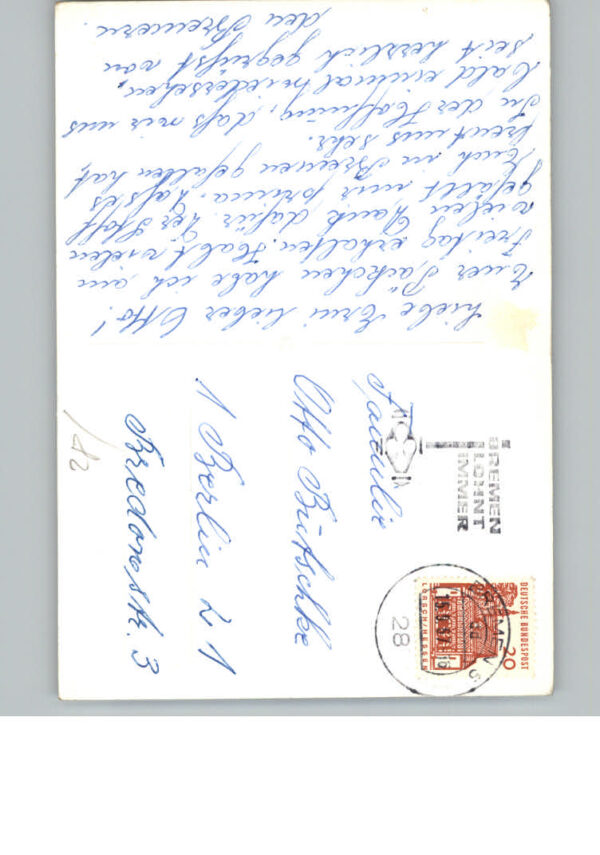 Liebe Erni lieber Otto!
Euer Päkchen habe ich am
Freitag erhalten. Habt vielen
vielen Dank dafür. Der Stoff
gefällt mir prima. Dass es
Euch in Bremen gefallen hat,
freut uns sehr.
In der Hoffnung, daß wir uns
bald einmal wiedersehen,
seit herzlich gegrüßt von
den Bremern
BREMEN
LOHNT
IMMER
DEUTSCHE BUNDESPOST
20
LORSCH/HESSEN
BREMEN 5
28
Familie
Otto Bütschke
1 Berlin 21
Bredowstr. 3